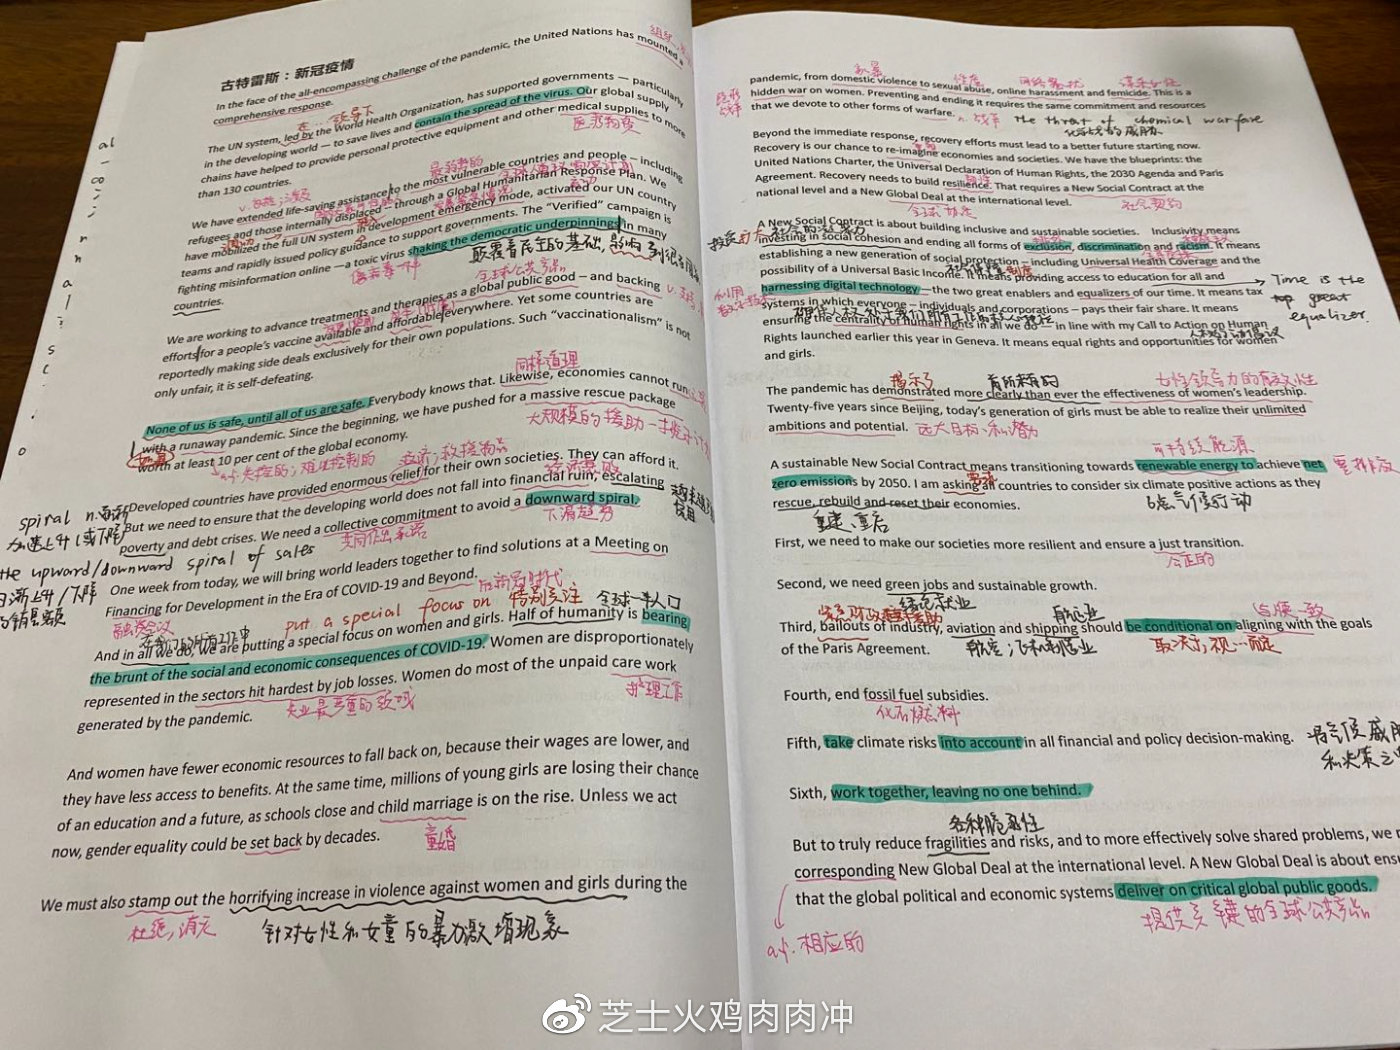 古特雷斯：新冠疫情
In the face of the all-encompassing challenge of the pandemic, the United Nations has mounted a
comprehensive response.
在…领导下
The UN system, led by the World Health Organization, has supported governments — particularly
in the developing world — to save lives and contain the spread of the virus. Our global supply
chains have helped to provide personal protective equipment and other medical supplies to more
医疗物资
than 130 countries.
最弱势的
We have extended life-saving assistance to the most vulnerable countries and people – including
refugees and those internally displaced – through a Global Humanitarian Response Plan. We
have mobilized the full UN system in development emergency mode, activated our UN country
teams and rapidly issued policy guidance to support governments. The “Verified” campaign is
fighting misinformation online – a toxic virus shaking the democratic underpinnings in many
颠覆着民主的基础,影响到很多国家
countries.
像病毒一样
全球公共产品
We are working to advance treatments and therapies as a global public good – and backing
efforts for a people’s vaccine available and affordable everywhere. Yet some countries are
reportedly making side deals exclusively for their own populations. Such “vaccinationalism” is not
only unfair, it is self-defeating.
同样道理
None of us is safe, until all of us are safe. Everybody knows that. Likewise, economies cannot run
with a runaway pandemic. Since the beginning, we have pushed for a massive rescue package
大规模的援助一揽子计划
worth at least 10 per cent of the global economy.
adj 失控的；难以控制的
救济；救援物品
Developed countries have provided enormous relief for their own societies. They can afford it.
But we need to ensure that the developing world does not fall into financial ruin, escalating
poverty and debt crises. We need a collective commitment to avoid a downward spiral.
共同作出承诺
下滑趋势
spiral n.
加速上升(或下降)
the upward/downward spiral of sales
日渐上升/下降
的销售额
One week from today, we will bring world leaders together to find solutions at a Meeting on
Financing for Development in the Era of COVID-19 and Beyond.
后新冠时代
融资会议
put a special focus on 特别关注
全球一半人口
And in all we do, we are putting a special focus on women and girls. Half of humanity is bearing
the brunt of the social and economic consequences of COVID-19. Women are disproportionately
represented in the sectors hit hardest by job losses. Women do most of the unpaid care work
失业最严重的领域
护理工作
generated by the pandemic.
And women have fewer economic resources to fall back on, because their wages are lower, and
they have less access to benefits. At the same time, millions of young girls are losing their chance
of an education and a future, as schools close and child marriage is on the rise. Unless we act
now, gender equality could be set back by decades.
童婚
We must also stamp out the horrifying increase in violence against women and girls during the
杜绝,消灭
针对女性和女童的暴力激增现象
家暴
性虐
pandemic, from domestic violence to sexual abuse, online harassment and femicide. This is a
hidden war on women. Preventing and ending it requires the same commitment and resources
隐形
战争
that we devote to other forms of warfare.
n. 战争 the threat of chemical warfare
化学战争的威胁
Beyond the immediate response, recovery efforts must lead to a better future starting now.
Recovery is our chance to re-imagine economies and societies. We have the blueprints: the
United Nations Charter, the Universal Declaration of Human Rights, the 2030 Agenda and Paris
Agreement. Recovery needs to build resilience. That requires a New Social Contract at the
national level and a New Global Deal at the international level.
全球协定
社会契约
A New Social Contract is about building inclusive and sustainable societies. Inclusivity means
investing in social cohesion and ending all forms of exclusion, discrimination and racism. It means
establishing a new generation of social protection – including Universal Health Coverage and the
possibility of a Universal Basic Income. It means providing access to education for all and
harnessing digital technology – the two great enablers and equalizers of our time. It means tax
利用
数字技术
Time is the
top great
equalizer.
systems in which everyone – individuals and corporations – pays their fair share. It means
ensuring the centrality of human rights in all we do – in line with my Call to Action on Human
Rights launched earlier this year in Geneva. It means equal rights and opportunities for women
and girls.
揭示了
前所未有的
女性领导力的有效性
The pandemic has demonstrated more clearly than ever the effectiveness of women’s leadership.
Twenty-five years since Beijing, today’s generation of girls must be able to realize their unlimited
ambitions and potential.
远大目标和潜力
可持续能源
A sustainable New Social Contract means transitioning towards renewable energy to achieve net
零排放
zero emissions by 2050. I am asking all countries to consider six climate positive actions as they
要求
rescue, rebuild and reset their economies.
重建、重启
6点气候行动
First, we need to make our societies more resilient and ensure a just transition.
公正的
Second, we need green jobs and sustainable growth.
绿色就业
航运业
与…一致
Third, bailouts of industry, aviation and shipping should be conditional on aligning with the goals
of the Paris Agreement.
取决于,视…而定
Fourth, end fossil fuel subsidies.
化石燃料
Fifth, take climate risks into account in all financial and policy decision-making.
Sixth, work together, leaving no one behind.
各种脆弱性
But to truly reduce fragilities and risks, and to more effectively solve shared problems, we
corresponding New Global Deal at the international level. A New Global Deal is about
that the global political and economic systems deliver on critical global public goods.
提供关键的全球公共产品
adj. 相应的
芝士火鸡肉肉冲